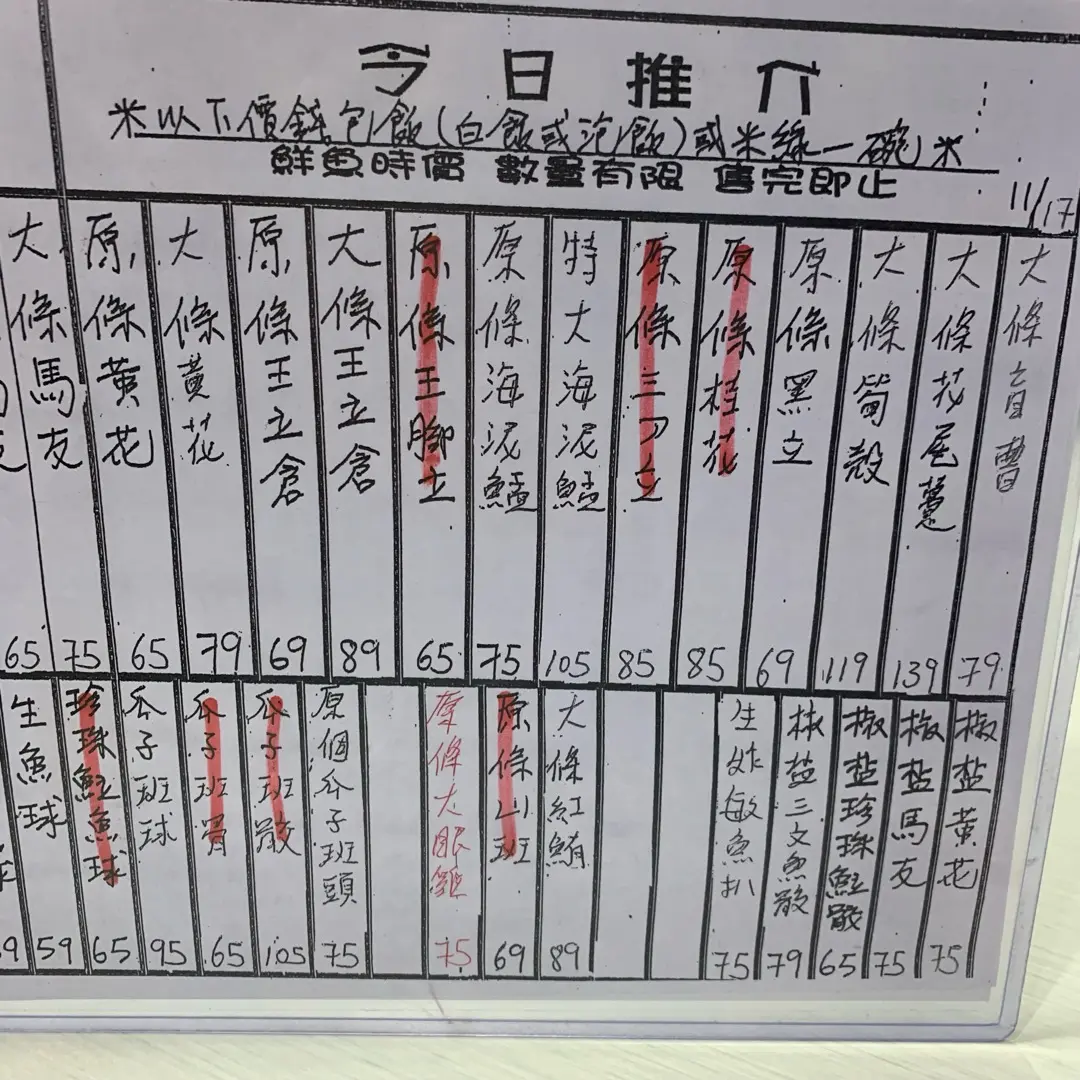 今日推介
米以下價錢包飯(白飯或泡飯)或米線一碗米
鮮魚時價 數量有限 售完即止
11/17
大條盲曹
79
大條花尾躉
139
大條筍殼
119
原條黑立
69
原條桂花
85
原條三刀立
85
特大海泥鯭
105
原條海泥鯭
75
原條王腳立
65
大條王立倉
89
原條王立倉
69
大條黃花
79
原條黃花
65
大條馬友
75
65
椒盐黃花
75
椒盐馬友
75
椒盐珍珠魟
65
椒盐三文魚
79
生炸敏魚扒
75
大條紅鮋
89
原條山班
69
原條大眼雞
75
原個瓜子班頭
75
瓜子班
105
瓜子班
65
瓜子班球
95
珍珠魟魚球
65
生魚球
59